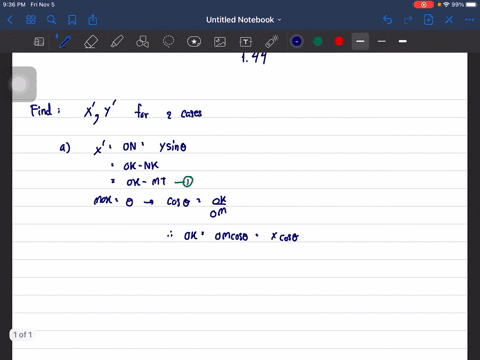 9:36 PM Fri Nov 5
99%
Untitled Notebook
1.44
Find: x', y' for 2 cases
a) x' = ON = Ysinθ
= OK-NK
= OK-MT —①
MOK = θ → cosθ = OK/OM
∴ OK = OMcosθ = xcosθ
1 of 1